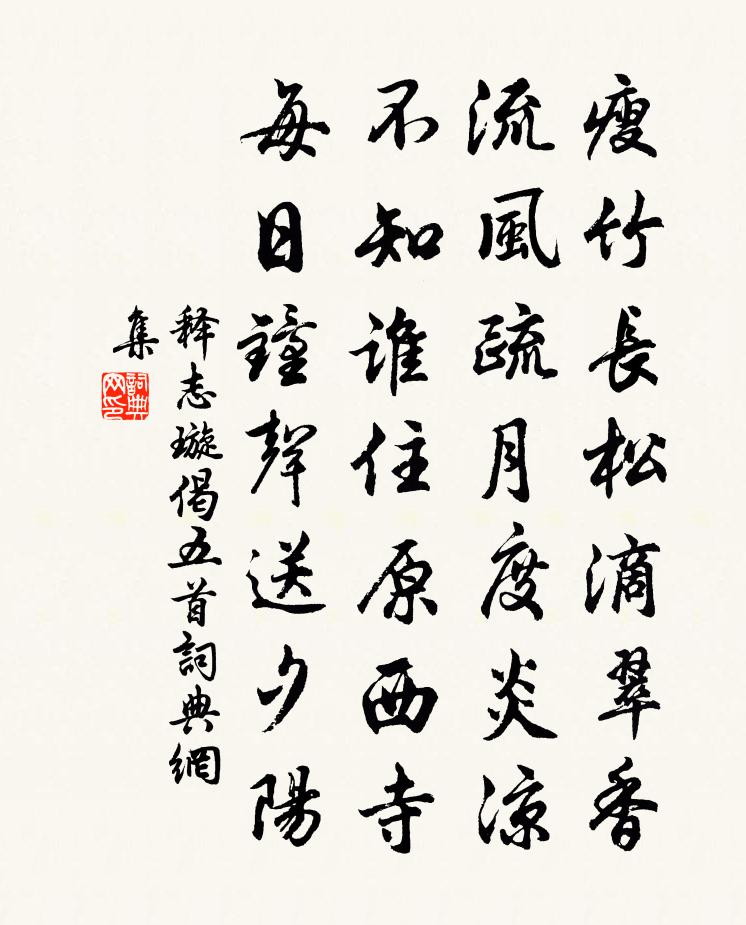 瘦竹長松滴翠香
流風疏月度炎涼
不知誰住原西寺
每日鐘聲送夕陽
释志璇偈五首詞典網
集
詞典网印